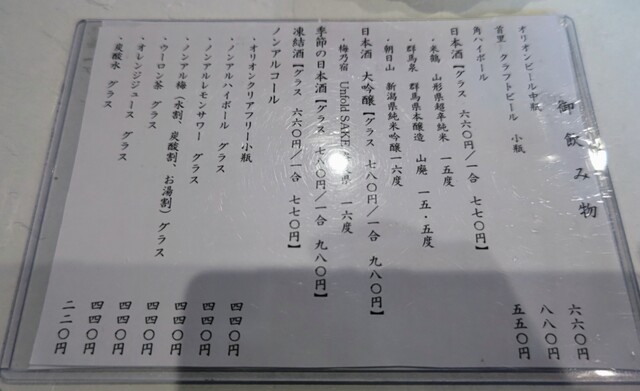 御飲み物
オリオンビール中瓶 六六〇円
首里 クラフトビール 小瓶 八八〇円
角ハイボール 五五〇円
日本酒【グラス 六六〇円／一合 七七〇円】
・米鶴 山形県超辛純米 一五度
・群馬泉 群馬県本醸造 山廃 一五・五度
・朝日山 新潟県純米吟醸一六度
日本酒 大吟醸【グラス 七八〇円／一合 九八〇円】
・梅乃宿 Unfold SAKE 一六度
季節の日本酒【グラス 七八〇円／一合 九八〇円】
凍結酒【グラス 六六〇円／一合 七七〇円】
ノンアルコール
・オリオンクリアフリー小瓶 四四〇円
・ノンアルハイボール グラス 四四〇円
・ノンアルレモンサワー グラス 四四〇円
・ノンアル梅（水割、炭酸割、お湯割）グラス 四四〇円
・ウーロン茶 グラス 四四〇円
・オレンジジュース グラス 四四〇円
・炭酸水 グラス 二二〇円